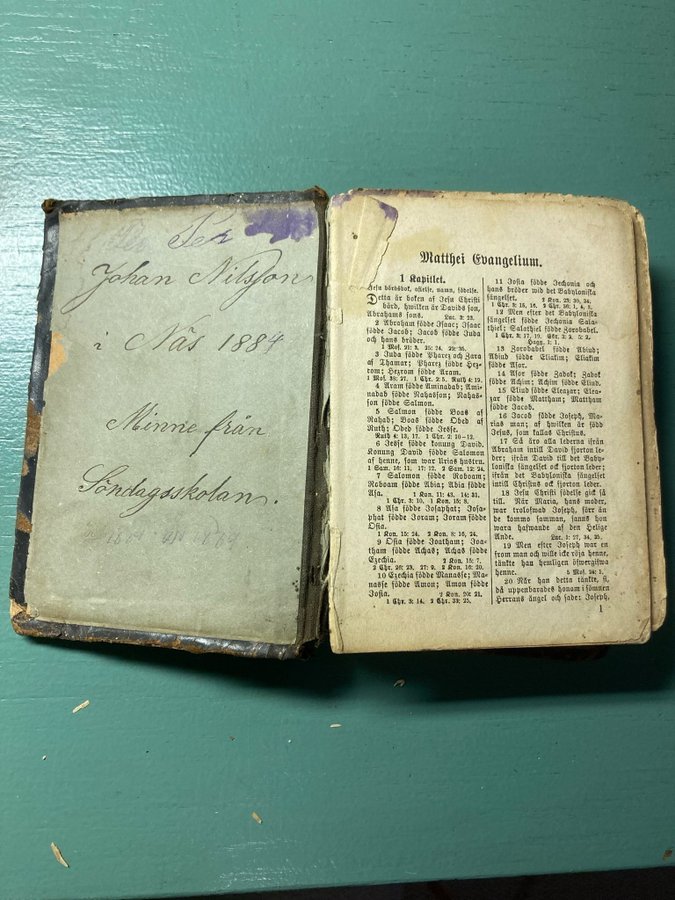 Per
Johan Nilsson
i Näs 1884
Minne från
Söndagsskolan.
Matthei Evangelium.
1 Kapitlet.
Jesu bördsbok, aflelse, namn, födelse.
Detta är boken af Jesu Christi
börd, hwilken är Davids son,
Abrahams sons. Luc. 3: 23.
2 Abraham födde Isaac; Isaac
födde Jacob; Jacob födde Juda
och hans bröder.
1 Mos. 21: 3. 25: 24. 29: 35.
3 Juda födde Pharez och Zara
af Thamar; Pharez födde Hez-
rom; Hezrom födde Aram.
1 Mos. 38: 27. 1 Chr. 2: 5. Ruth 4: 19.
4 Aram födde Aminadab; Ami-
nadab födde Nahasson; Nahas-
son födde Salmon.
5 Salmon födde Boas af
Rahab; Boas födde Obed af
Ruth; Obed födde Jesse.
Ruth 4: 13, 17. 1 Chr. 2: 10-12.
6 Jesse födde konung David.
Konung David födde Salomon
af henne, som war Urias hustru.
1 Sam. 16: 11. 17: 12. 2 Sam. 12: 24.
7 Salomon födde Roboam;
Roboam födde Abia; Abia födde
Asa. 1 Kon. 11: 43. 14: 31.
1 Chr. 3: 10. 1 Kon. 15: 8.
8 Asa födde Josaphat; Josa-
phat födde Joram; Joram födde
Osia.
1 Kon. 15: 24. 2 Kon. 8: 16, 24.
9 Osia födde Joatham; Joa-
tham födde Achas; Achas födde
Ezechia. 2 Kon. 15: 7.
2 Chr. 26: 23. 27: 9. 2 Kon. 16: 20.
10 Ezechia födde Manasse; Ma-
nasse födde Amon; Amon födde
Josia. 2 Kon. 20: 21.
1 Chr. 3: 14. 2 Chr. 33: 25.
11 Josia födde Jechonia och
hans bröder wid det Babyloniska
fängelset. 2 Kon. 23: 30, 34.
1 Chr. 3: 15, 16. 2 Chr. 36: 1, 4, 8.
12 Men efter det Babyloniska
fängelset födde Jechonia Sala-
thiel; Salathiel födde Zorobabel.
1 Chr. 3: 17, 19. Esr. 3: 2. 5: 2.
Hagg. 1: 1.
13 Zorobabel födde Abiud;
Abiud födde Eliakim; Eliakim
födde Asor.
14 Asor födde Zadok; Zadok
födde Achim; Achim födde Eliud.
15 Eliud födde Eleazar; Elea-
zar födde Matthan; Matthan
födde Jacob.
16 Jacob födde Joseph, Ma-
rias man; af hwilken är född
Jesus, som kallas Christus.
17 Så äro alla lederna ifrån
Abraham intill David fjorton le-
der; ifrån David till det Baby-
loniska fängelset ock fjorton leder;
ifrån det Babyloniska fängelset
intill Christus ock fjorton leder.
18 Jesu Christi födelse gick så
till. När Maria, hans moder,
war trolofwad Joseph, förr än
de kommo samman, fanns hon
wara hafwande af den Helige
Ande. Luc. 1: 27, 34, 35.
19 Men efter Joseph war en
from man och wille icke röja henne,
tänkte han hemligen öfwergifwa
henne. 5 Mos. 24: 1.
20 När han detta tänkte, si,
då uppenbarades honom i sömnen
Herrans ängel och sade: Joseph,
1